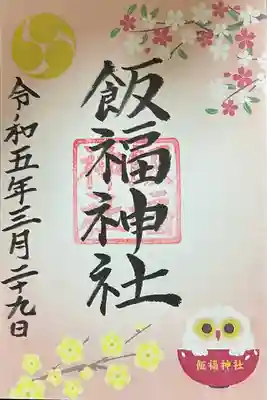 飯福神社
令和五年三月二十九日
飯福神社